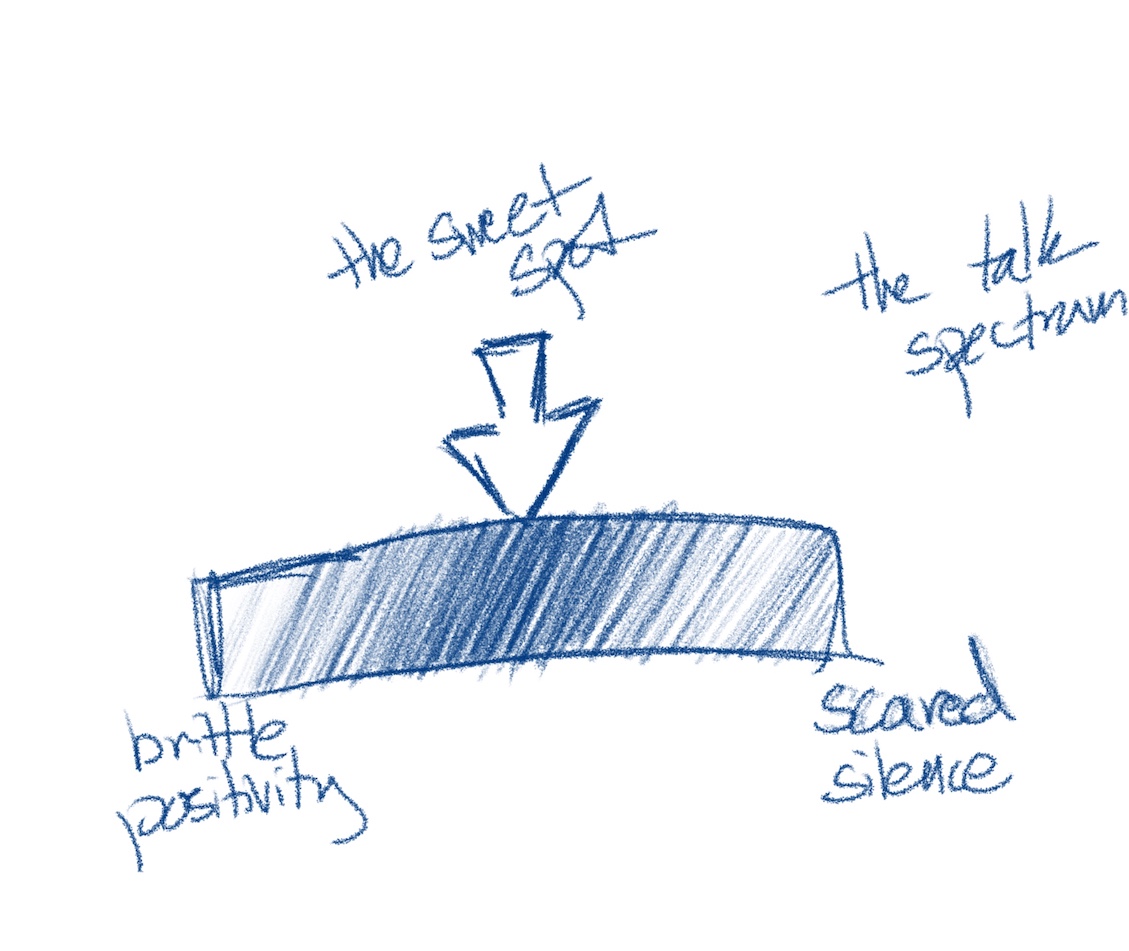 the sweet
spot
the talk
spectrum
brittle
positivity
scared
silence